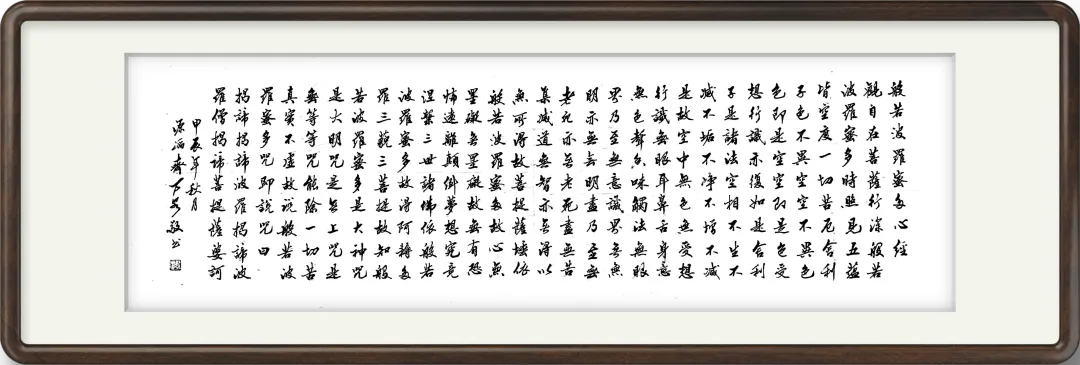 般若波羅蜜多心經
觀自在菩薩行深般若
波羅蜜多時照見五蘊
皆空度一切苦厄舍利
子色不異空空不異色
色即是空空即是色受
想行識亦復如是舍利
子是諸法空相不生不
滅不垢不淨不增不減
是故空中無色無受想
行識無眼耳鼻舌身意
無色聲香味觸法無眼
界乃至無意識界無無
明亦無無明盡乃至無
老死亦無老死盡無苦
集滅道無智亦無得以
無所得故菩提薩埵依
般若波羅蜜多故心無
罣礙無罣礙故無有恐
怖遠離顛倒夢想究竟
涅槃三世諸佛依般若
波羅蜜多故得阿耨多
羅三藐三菩提故知般
若波羅蜜多是大神咒
是大明咒是無上咒是
無等等咒能除一切苦
真實不虛故說般若波
羅蜜多咒即說咒曰
揭諦揭諦波羅揭諦波
羅僧揭諦菩提薩婆訶
甲辰年秋月
齋敬书